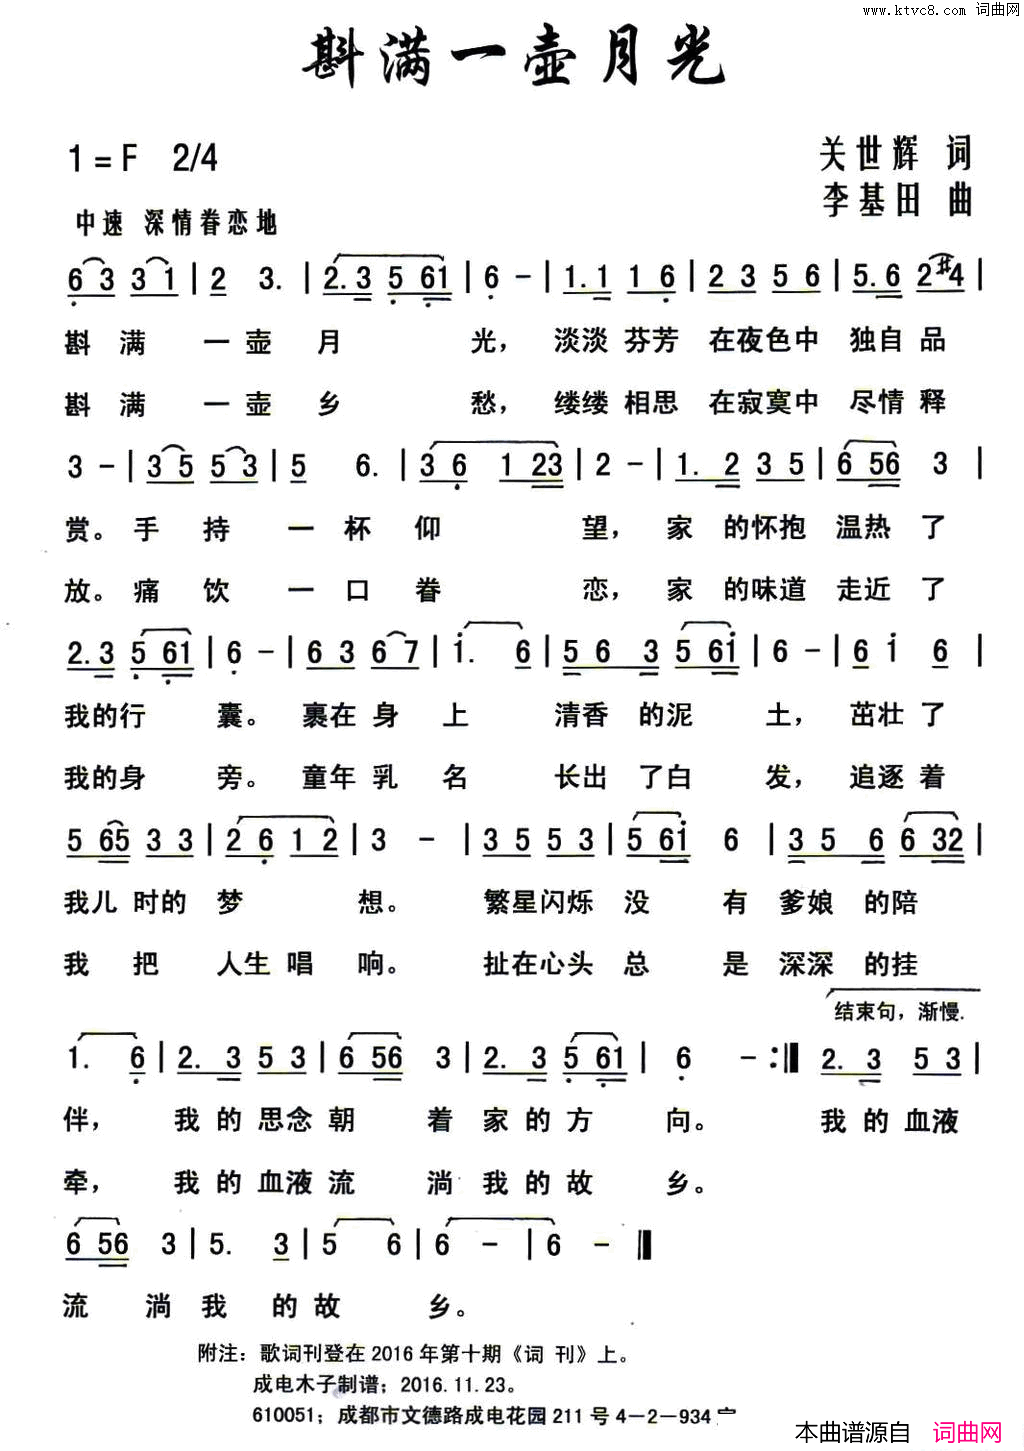 www.ktvc8.com 词曲网
斟满一壶月光
1=F 2/4
关世辉 词
李基田 曲
中速 深情眷恋地
6 3 3 1 | 2 3. | 2.3 5 61 | 6 - | 1.1 1 6 | 2 3 5 6 | 5.6 2 #4 |
斟 满 一 壶 月 光， 淡淡 芬芳 在夜色中 独自 品
斟 满 一 壶 乡 愁， 缕缕 相思 在寂寞中 尽情 释
3 - | 3 5 5 3 | 5 6. | 3 6 1 23 | 2 - | 1. 2 3 5 | 6 56 3 |
赏。 手 持 一 杯 仰 望， 家 的怀抱 温热 了
放。 痛 饮 一 口 眷 恋， 家 的味道 走近 了
2.3 5 61 | 6 - | 6 3 6 7 | i. 6 | 5 6 3 5 6i | 6 - | 6 i 6 |
我的行 囊。 裹在 身 上 清香 的泥 土， 茁壮 了
我的身 旁。 童年 乳 名 长出 了白 发， 追逐 着
5 65 3 3 | 2 6 1 2 | 3 - | 3 5 5 3 | 5 6i 6 | 3 5 6 6 32 |
我儿 时的 梦 想。 繁星闪烁 没 有 爹娘 的陪
我 把 人生 唱 响。 扯在心头 总 是 深深 的挂
结束句，渐慢.
1. 6 | 2. 3 5 3 | 6 56 3 | 2. 3 5 61 | 6 - :‖ 2. 3 5 3 |
伴， 我 的 思念 朝 着 家 的 方 向。 我 的 血液
牵， 我 的 血液 流 淌 我 的 故 乡。
6 56 3 | 5. 3 | 5 6 | 6 - | 6 - ‖
流 淌 我 的 故 乡。
附注：歌词刊登在2016年第十期《词 刊》上。
成电木子制谱；2016.11.23。
610051；成都市文德路成电花园211号4-2-934
本曲谱源自 词曲网